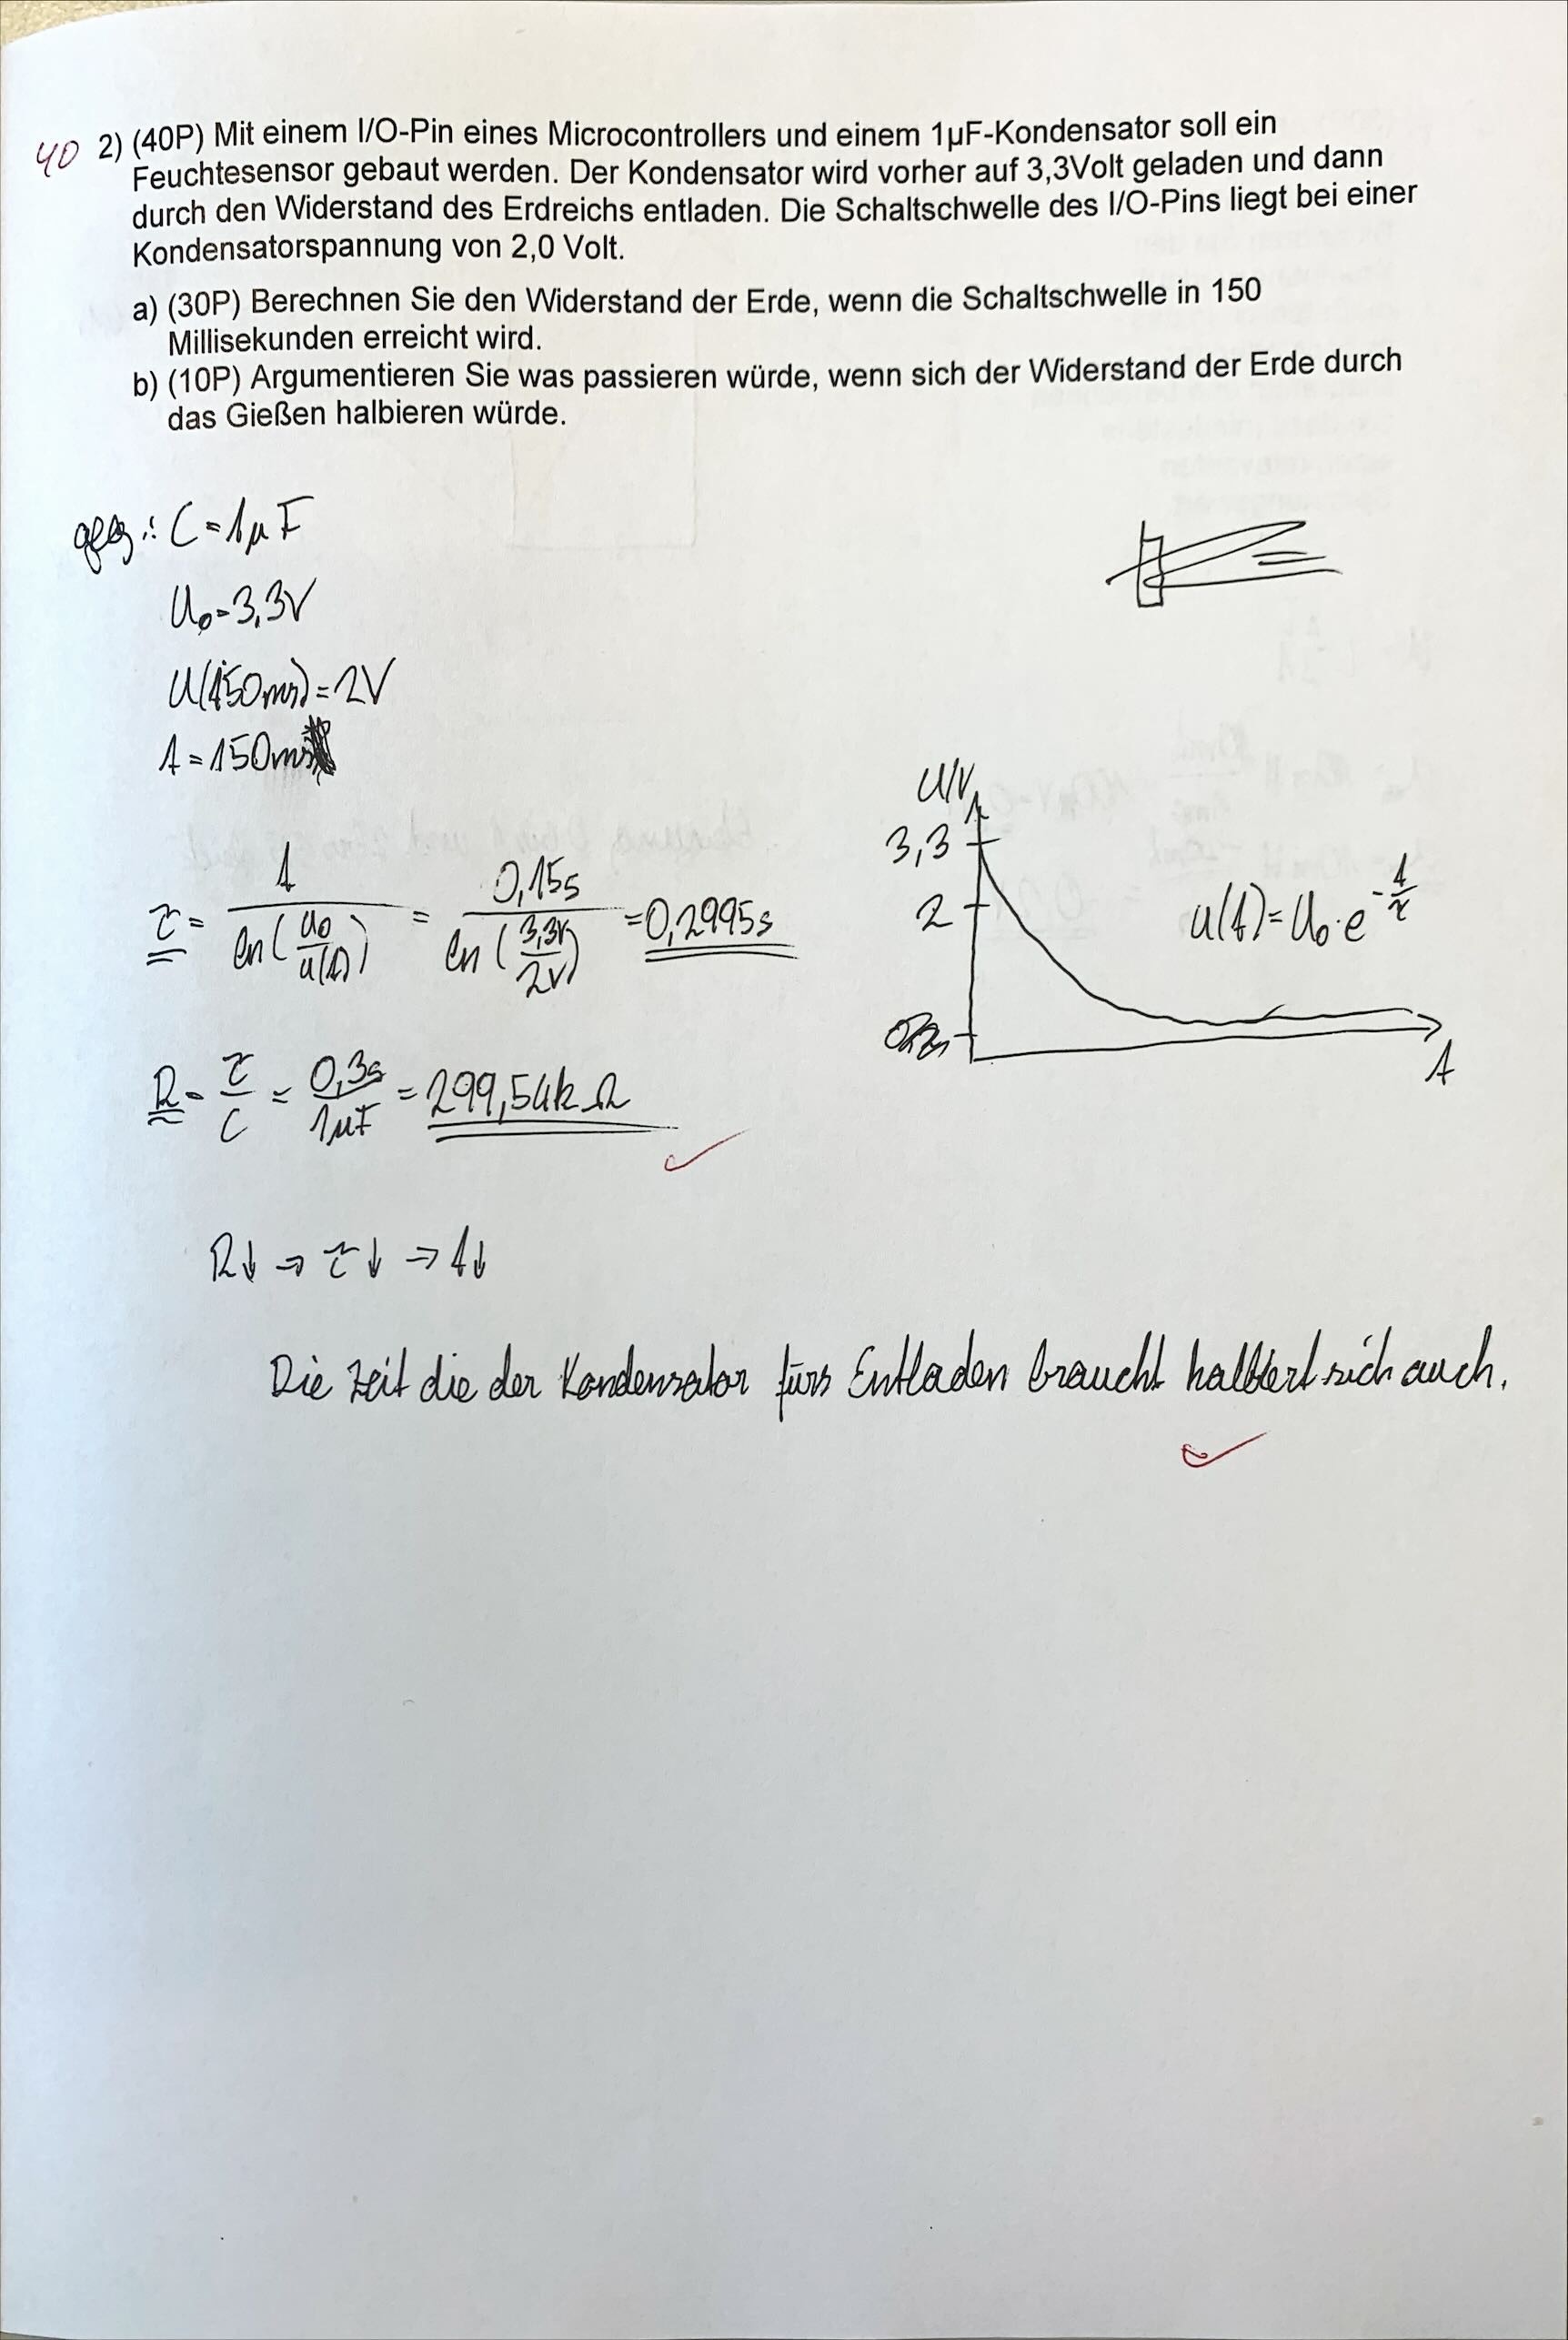 40 2) (40P) Mit einem I/O-Pin eines Microcontrollers und einem 1µF-Kondensator soll ein
Feuchtesensor gebaut werden. Der Kondensator wird vorher auf 3,3Volt geladen und dann
durch den Widerstand des Erdreichs entladen. Die Schaltschwelle des I/O-Pins liegt bei einer
Kondensatorspannung von 2,0 Volt.
a) (30P) Berechnen Sie den Widerstand der Erde, wenn die Schaltschwelle in 150
Millisekunden erreicht wird.
b) (10P) Argumentieren Sie was passieren würde, wenn sich der Widerstand der Erde durch
das Gießen halbieren würde.
geg.: C=1µF
U₀=3,3V
U(150ms)=2V
t=150ms
τ = t / ln(U₀/u(t)) = 0,15s / ln(3,3V/2V) = 0,2995s
U/V
3,3
2
t
u(t)=U₀·e^(-t/τ)
R = τ/C = 0,3s/1µF = 299,54kΩ
R↓ ⇒ τ↓ ⇒ t↓
Die Zeit die der Kondensator fürs Entladen braucht halbiert sich auch.